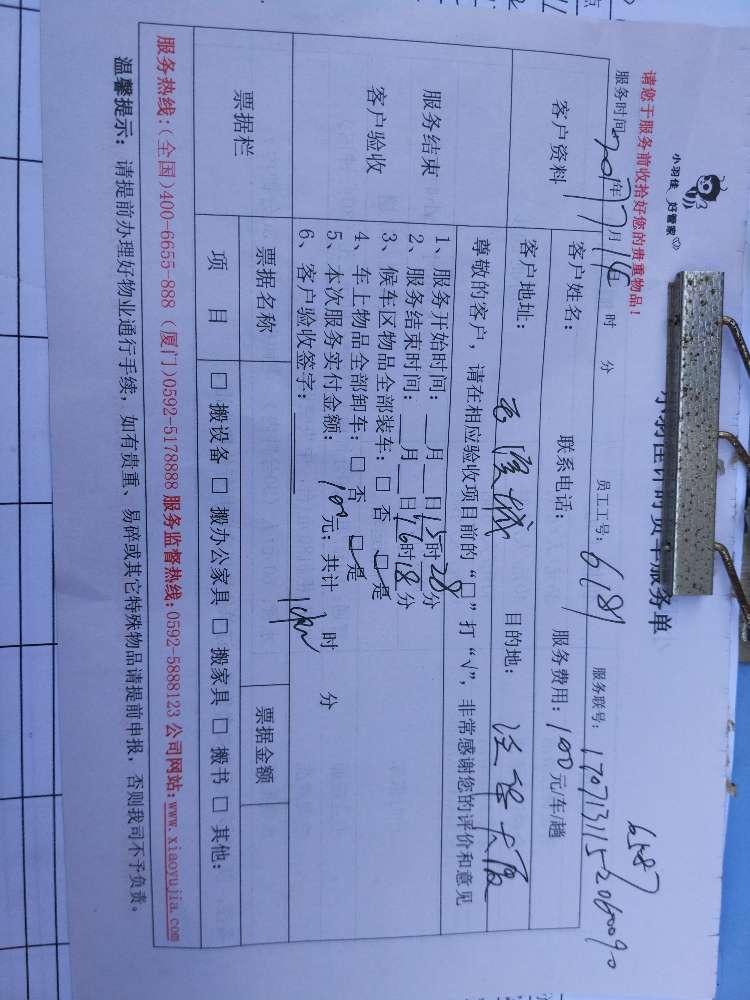 小羽佳 好管家
请您于服务前收拾好您的贵重物品！
服务时间: 2017年7月14 时 分 员工工号: 6181 服务联号: 170713115206009
6587
客户资料
客户姓名: 联系电话: 服务费用: 100元/车/趟
客户地址: 目的地:
服务结束
客户验收
尊敬的客户，请在相应验收项目前的“□”打“√”，非常感谢您的评价和意见
1、服务开始时间: __月__日15时28分
2、服务结束时间: __月__日16时18分
3、候车区物品全部装车: □ 否 □ 是
4、车上物品全部卸车: □ 否 □ 是
5、本次服务实付金额: 100元; 共计 时 分
6、客户验收签字:
票据栏
票据名称 票据金额
项目 □ 搬设备 □ 搬办公家具 □ 搬家具 □ 搬书 □ 其他:
服务热线:(全国)400-6655-888 (厦门)0592-5178888 服务监督热线:0592-5888123 公司网站:www.xiaoyujia.com
温馨提示: 请提前办理好物业通行手续，如有贵重、易碎或其它特殊物品请提前申报，否则我司不予负责。